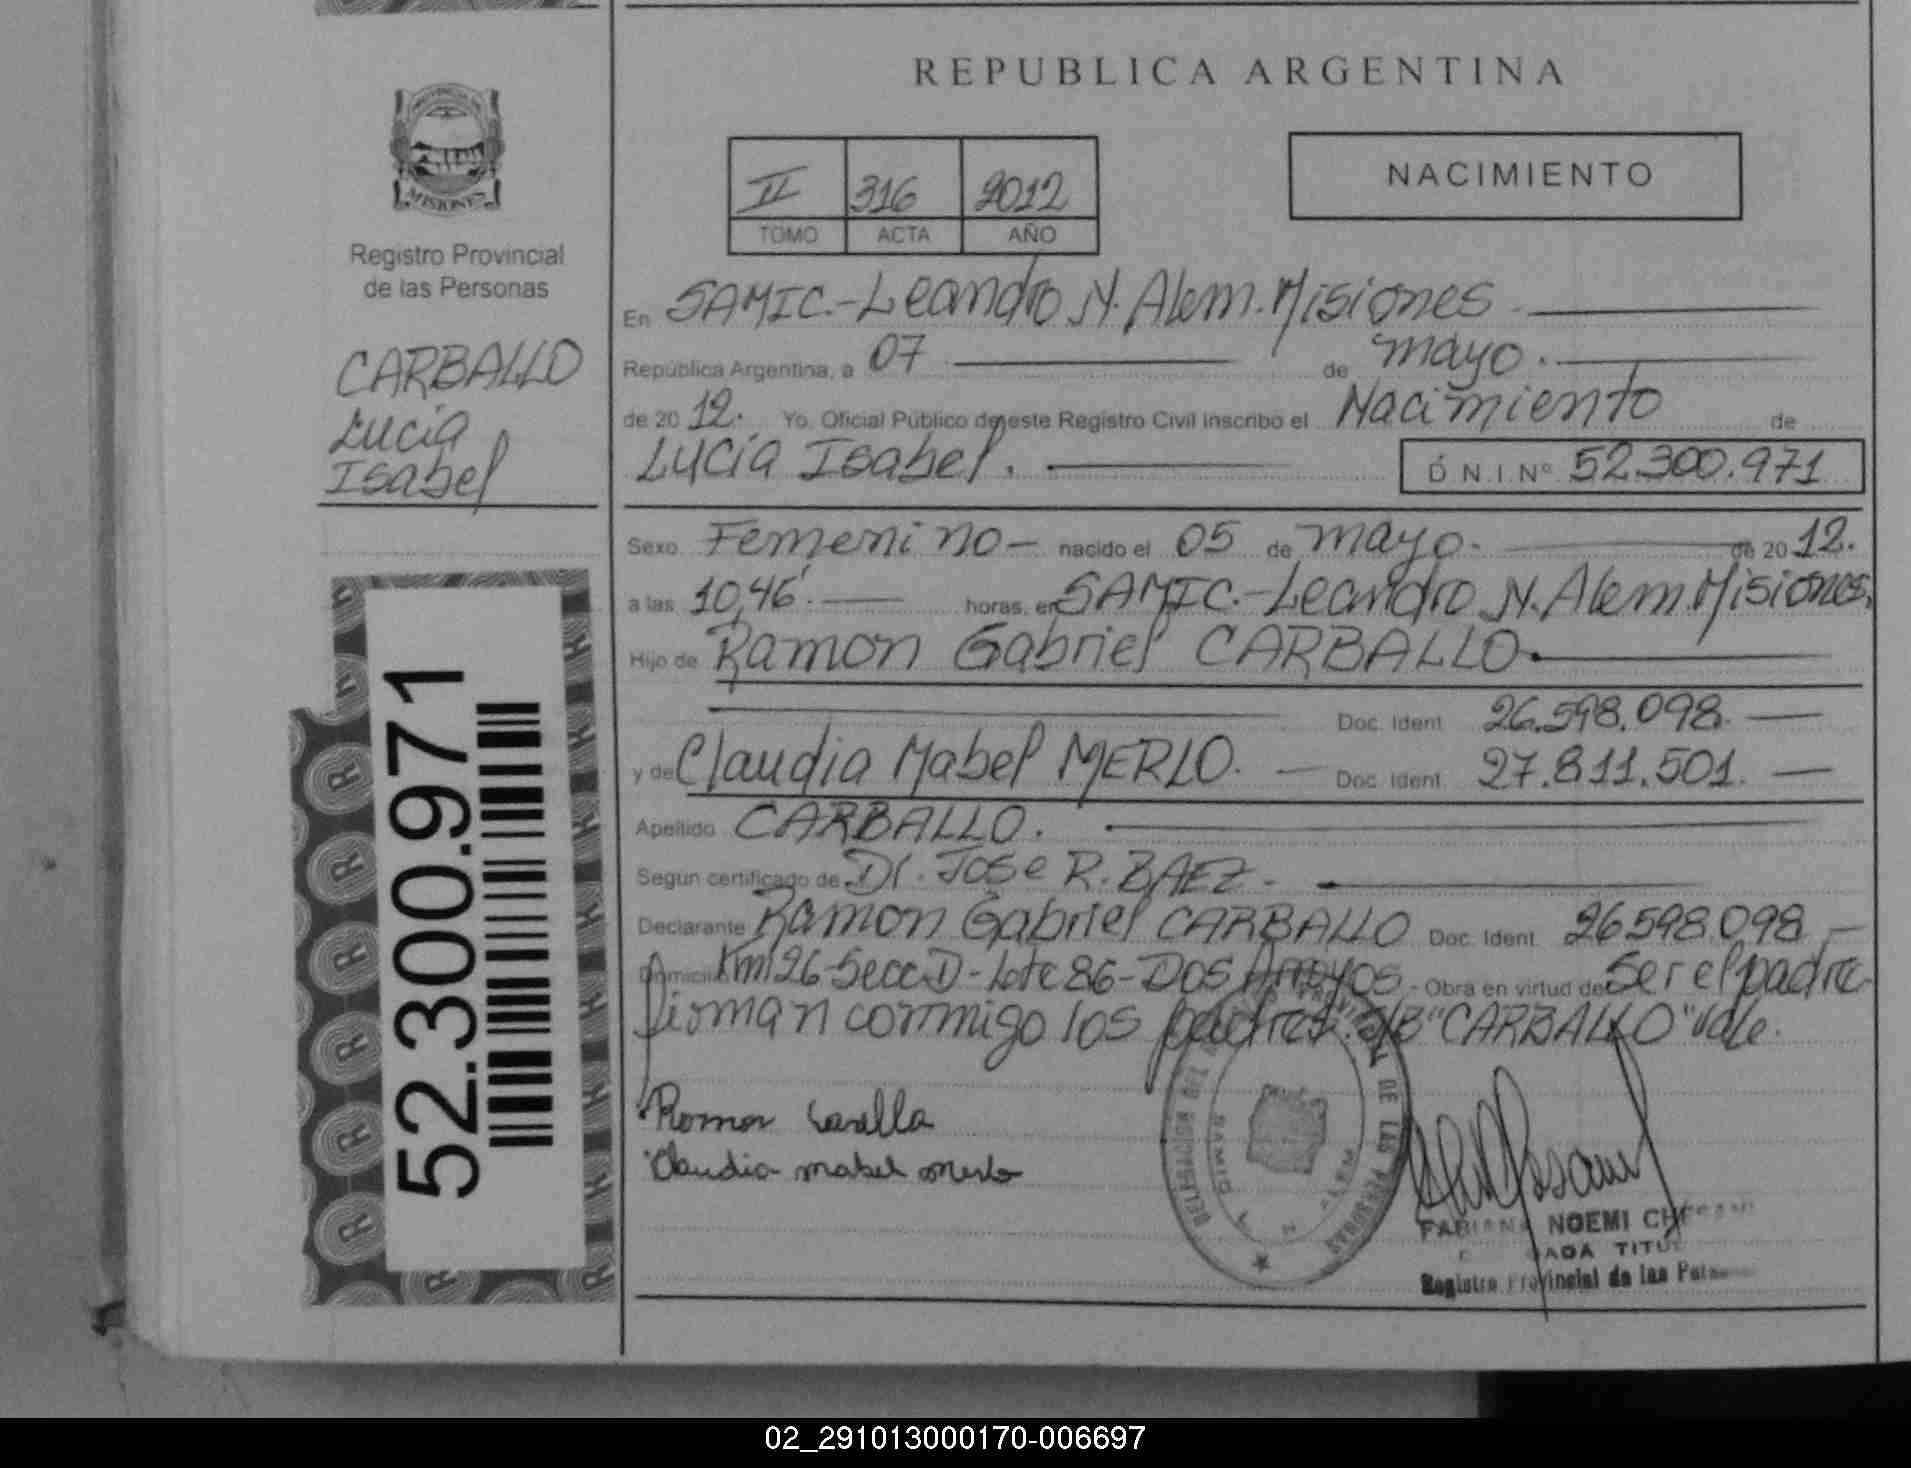 REPUBLICA ARGENTINA
PROVINCIA DE
MISIONES
Registro Provincial
de las Personas
CARBALLO
Lucía
Isabel
52.300.971
II 316 2012
TOMO ACTA AÑO
NACIMIENTO
En SAMIC.-Leandro N. Alem. Misiones
República Argentina, a 07 de mayo.
de 2012. Yo, Oficial Público de este Registro Civil Inscribo el Nacimiento de
Lucía Isabel. D.N.I.Nº 52.300.971
Sexo Femenino- nacido el 05 de mayo. de 2012.
a las 10,46'. horas, en SAMIC.-Leandro N. Alem. Misiones.
Hijo de Ramon Gabriel CARBALLO.
Doc. Ident. 26.598.098.
y de Claudia Mabel MERLO. Doc. Ident. 27.811.501.
Apellido CARBALLO.
Segun certificado de Dr. Jose R. BAEZ.
Declarante Ramon Gabriel CARBALLO Doc. Ident. 26598.098
Domicilio Km 26-Secc D-Lote 86-Dos Arroyos. Obra en virtud de ser el padre
firman conmigo los padres. "CARBALLO" vale.
Ramon
Claudia mabel merlo
DELEGACION DE LAS PERSONAS
SAMIC L. N. ALEM
FABIANA NOEMI
Registro Provincial de las Personas
02_291013000170-006697